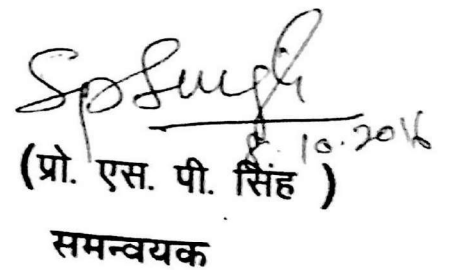 SpSingh
8.10.2016
(प्रो. एस. पी. सिंह )
समन्वयक